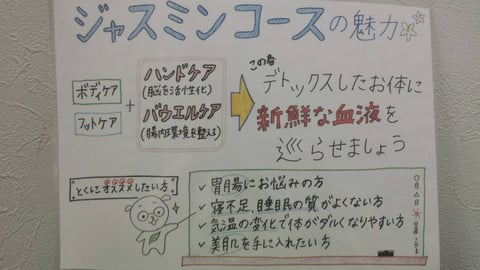 ジャスミンコースの魅力
ボディケア
フットケア
+
ハンドケア
(脳を活性化)
バウエルケア
(腸内環境を整える)
この春
デトックスしたお体に
新鮮な血液を
巡らせましょう
とくにオススメしたい方
✓ 胃腸にお悩みの方
✓ 寝不足、睡眠の質がよくない方
✓ 気温の変化で体がダルくなりやすい方
✓ 美肌を手に入れたい方